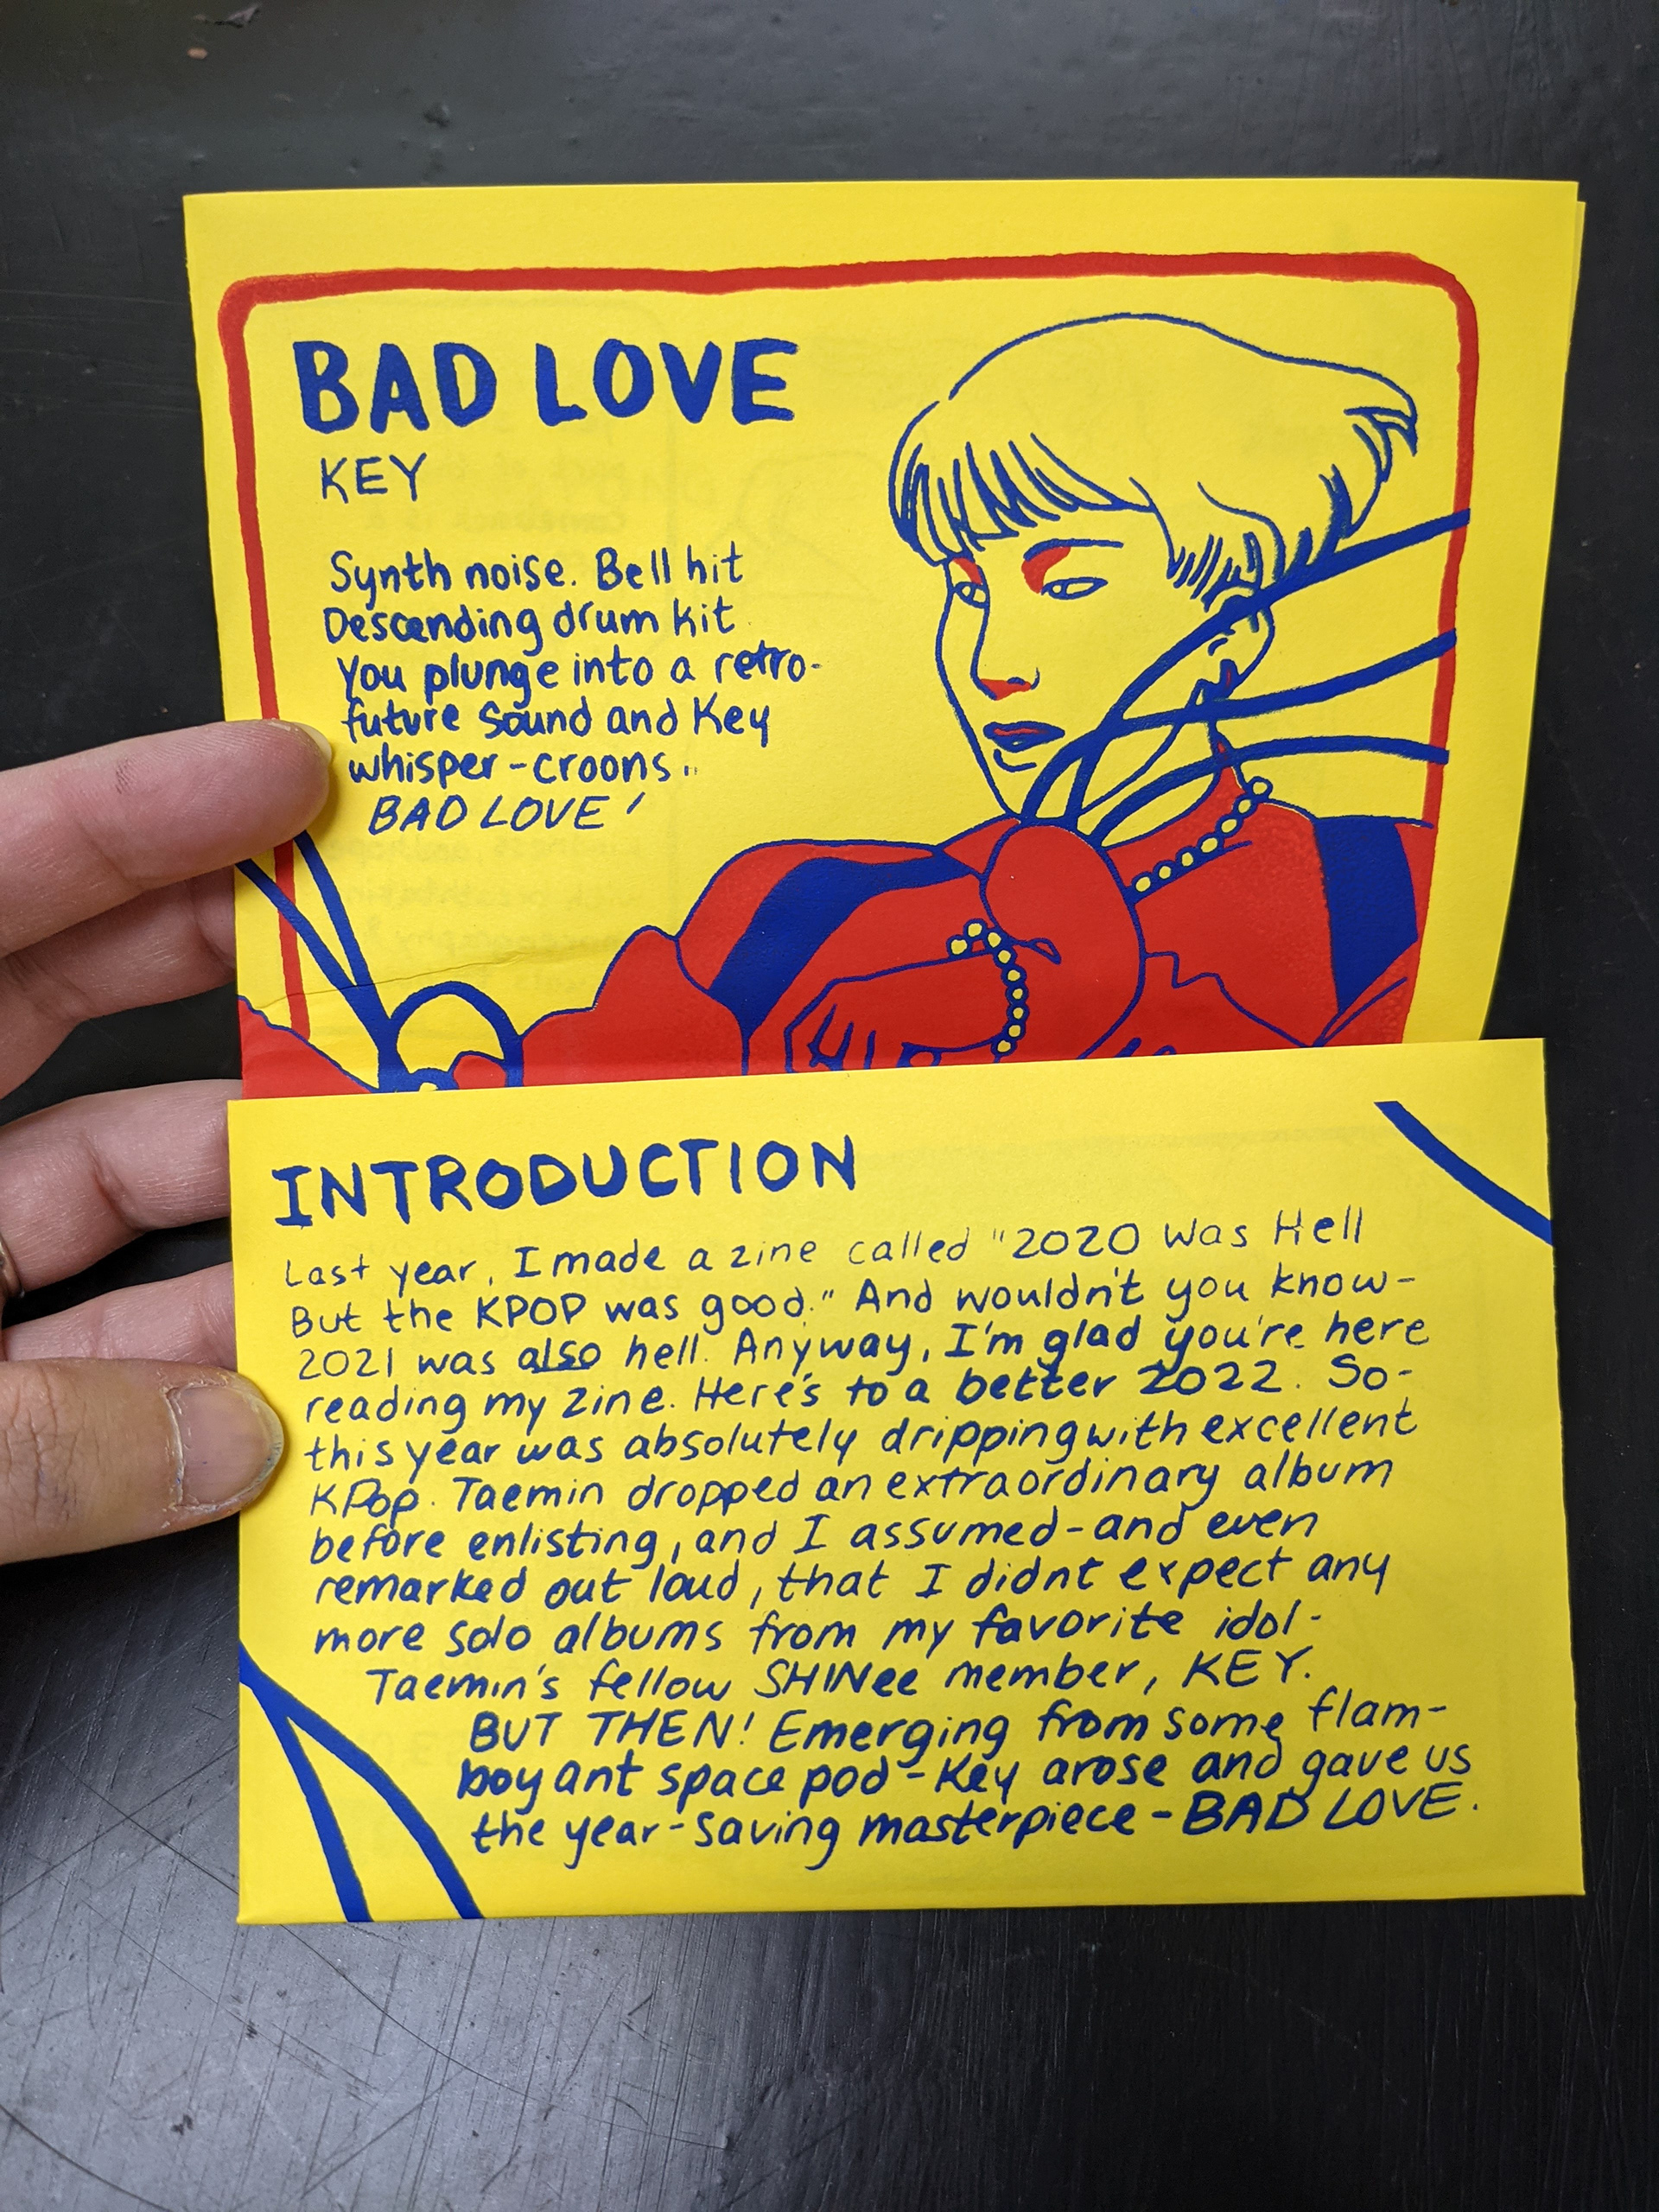 BAD LOVE
KEY
Synth noise. Bell hit
Descending drum kit
You plunge into a retro-
future sound and Key
whisper-croons.
BAD LOVE'
INTRODUCTION
Last year, I made a zine called "2020 Was Hell
But the KPOP was good." And wouldn't you know-
2021 was also hell. Anyway, I'm glad you're here
reading my zine. Here's to a better 2022. So-
this year was absolutely dripping with excellent
KPop. Taemin dropped an extraordinary album
before enlisting, and I assumed-and even
remarked out loud, that I didnt expect any
more solo albums from my favorite idol-
Taemin's fellow SHINee member, KEY.
BUT THEN! Emerging from some flam-
boyant space pod-Key arose and gave us
the year-saving masterpiece-BAD LOVE.